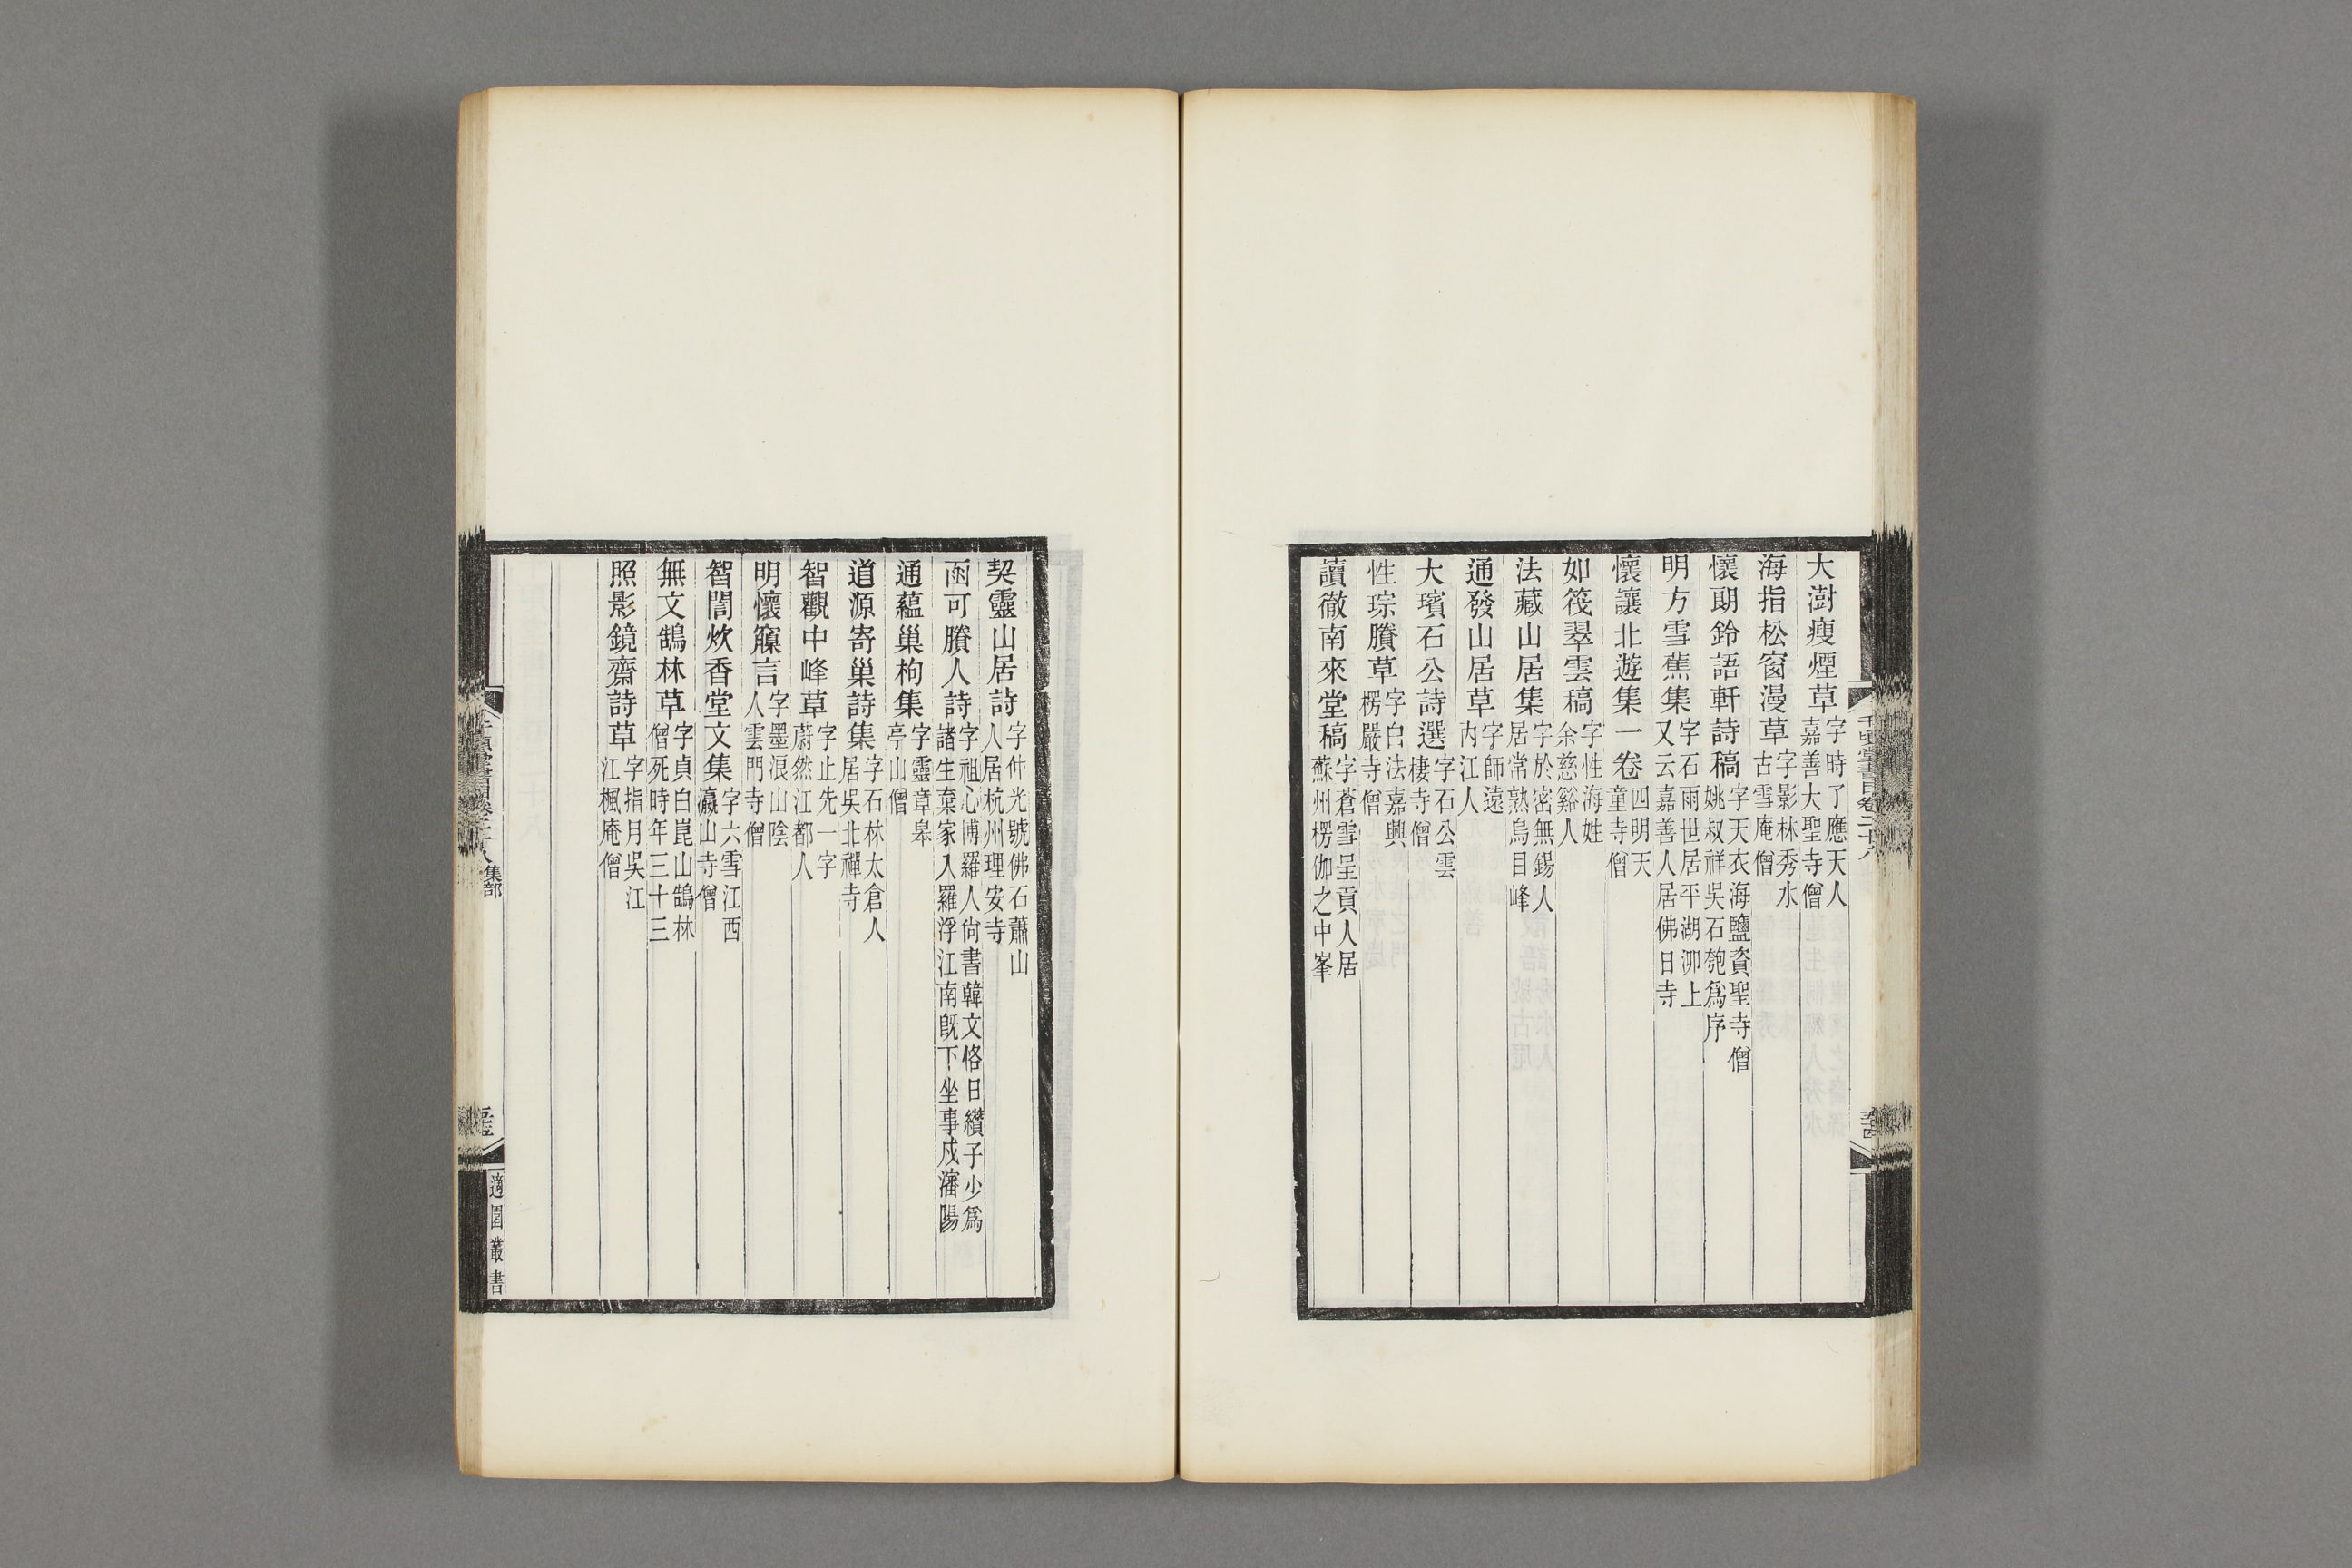 大澍瘦煙草字時了應天人嘉善大聖寺僧
海指松窗漫草字影林秀水古雪庵僧
懷朗鈴語軒詩稿字天衣海鹽資聖寺僧姚叔祥吳石匏爲序
明方雪蕉集字石雨世居平湖泖上又云嘉善人居佛日寺
懷讓北遊集一卷四明天童寺僧
如筏翠雲稿字性海姓余慈谿人
法藏山居集字於密無錫人居常熟烏目峰
通發山居草字師遠内江人
大璸石公詩選字石公雲棲寺僧
性琮賸草字白法嘉興楞嚴寺僧
讀徹南來堂稿字蒼雪呈貢人居蘇州楞伽之中峯
契靈山居詩字仲光號佛石蕭山人居杭州理安寺
函可賸人詩字祖心博羅人尙書韓文恪日纘子少爲諸生棄家入羅浮江南旣下坐事戍瀋陽
通蘊巢枸集字靈章皋亭山僧
道源寄巢詩集字石林太倉人居吳北禪寺
智觀中峰草字止先一字蔚然江都人
明懷簾言字墨浪山陰人雲門寺僧
智誾炊香堂文集字六雪江西瀛山寺僧
無文鵠林草字貞白崑山鵠林僧死時年三十三
照影鏡齋詩草字指月吳江江楓庵僧
集部
適園叢書